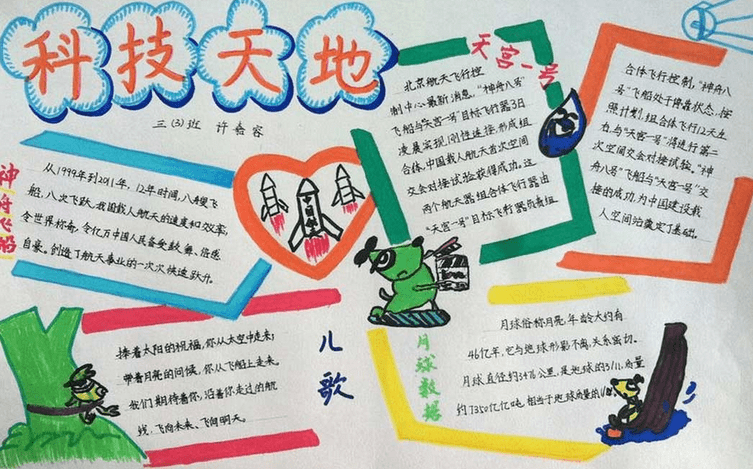 科技天地
三(3)班 许睿容
神舟飞船
从1999年到2011年,12年时间,八艘飞
船,八次飞跃,我国载人航天的速度和效率,
令世界称奇,令亿万中国人民备受鼓舞、倍感
自豪。创造了航天事业的一次次快速跃升。
中国航天
天宫一号
北京航天飞行控
制中心最新消息,"神舟八号"
飞船与"天宫一号"目标飞行器3日
凌晨实现刚性连接,形成组
合体,中国载人航天首次空间
交会对接试验获得成功。这
两个航天器组合体飞行器由
"天宫一号"目标飞行器负责组
合体飞行控制,"神舟八
号"飞船处于停靠状态,按
照计划,组合体飞行12天左
右,与"天宫一号"将进行第二
次空间交会对接试验。"神
舟八号"飞船与"天宫一号"交
接的成功,为中国建设载
人空间站奠定了基础。
儿歌
捧着太阳的祝福,你从太空中走来;
带着月亮的问候,你从飞船上走来。
我们期待着你,沿着你走过的航
线,飞向未来、飞向明天。
月球数据
月球俗称月亮,年龄大约有
46亿年,它与地球形影不离,关系密切。
月球直径约3476公里,是地球的3/11,质量
约7350亿亿吨,相当于地球质量的1/81